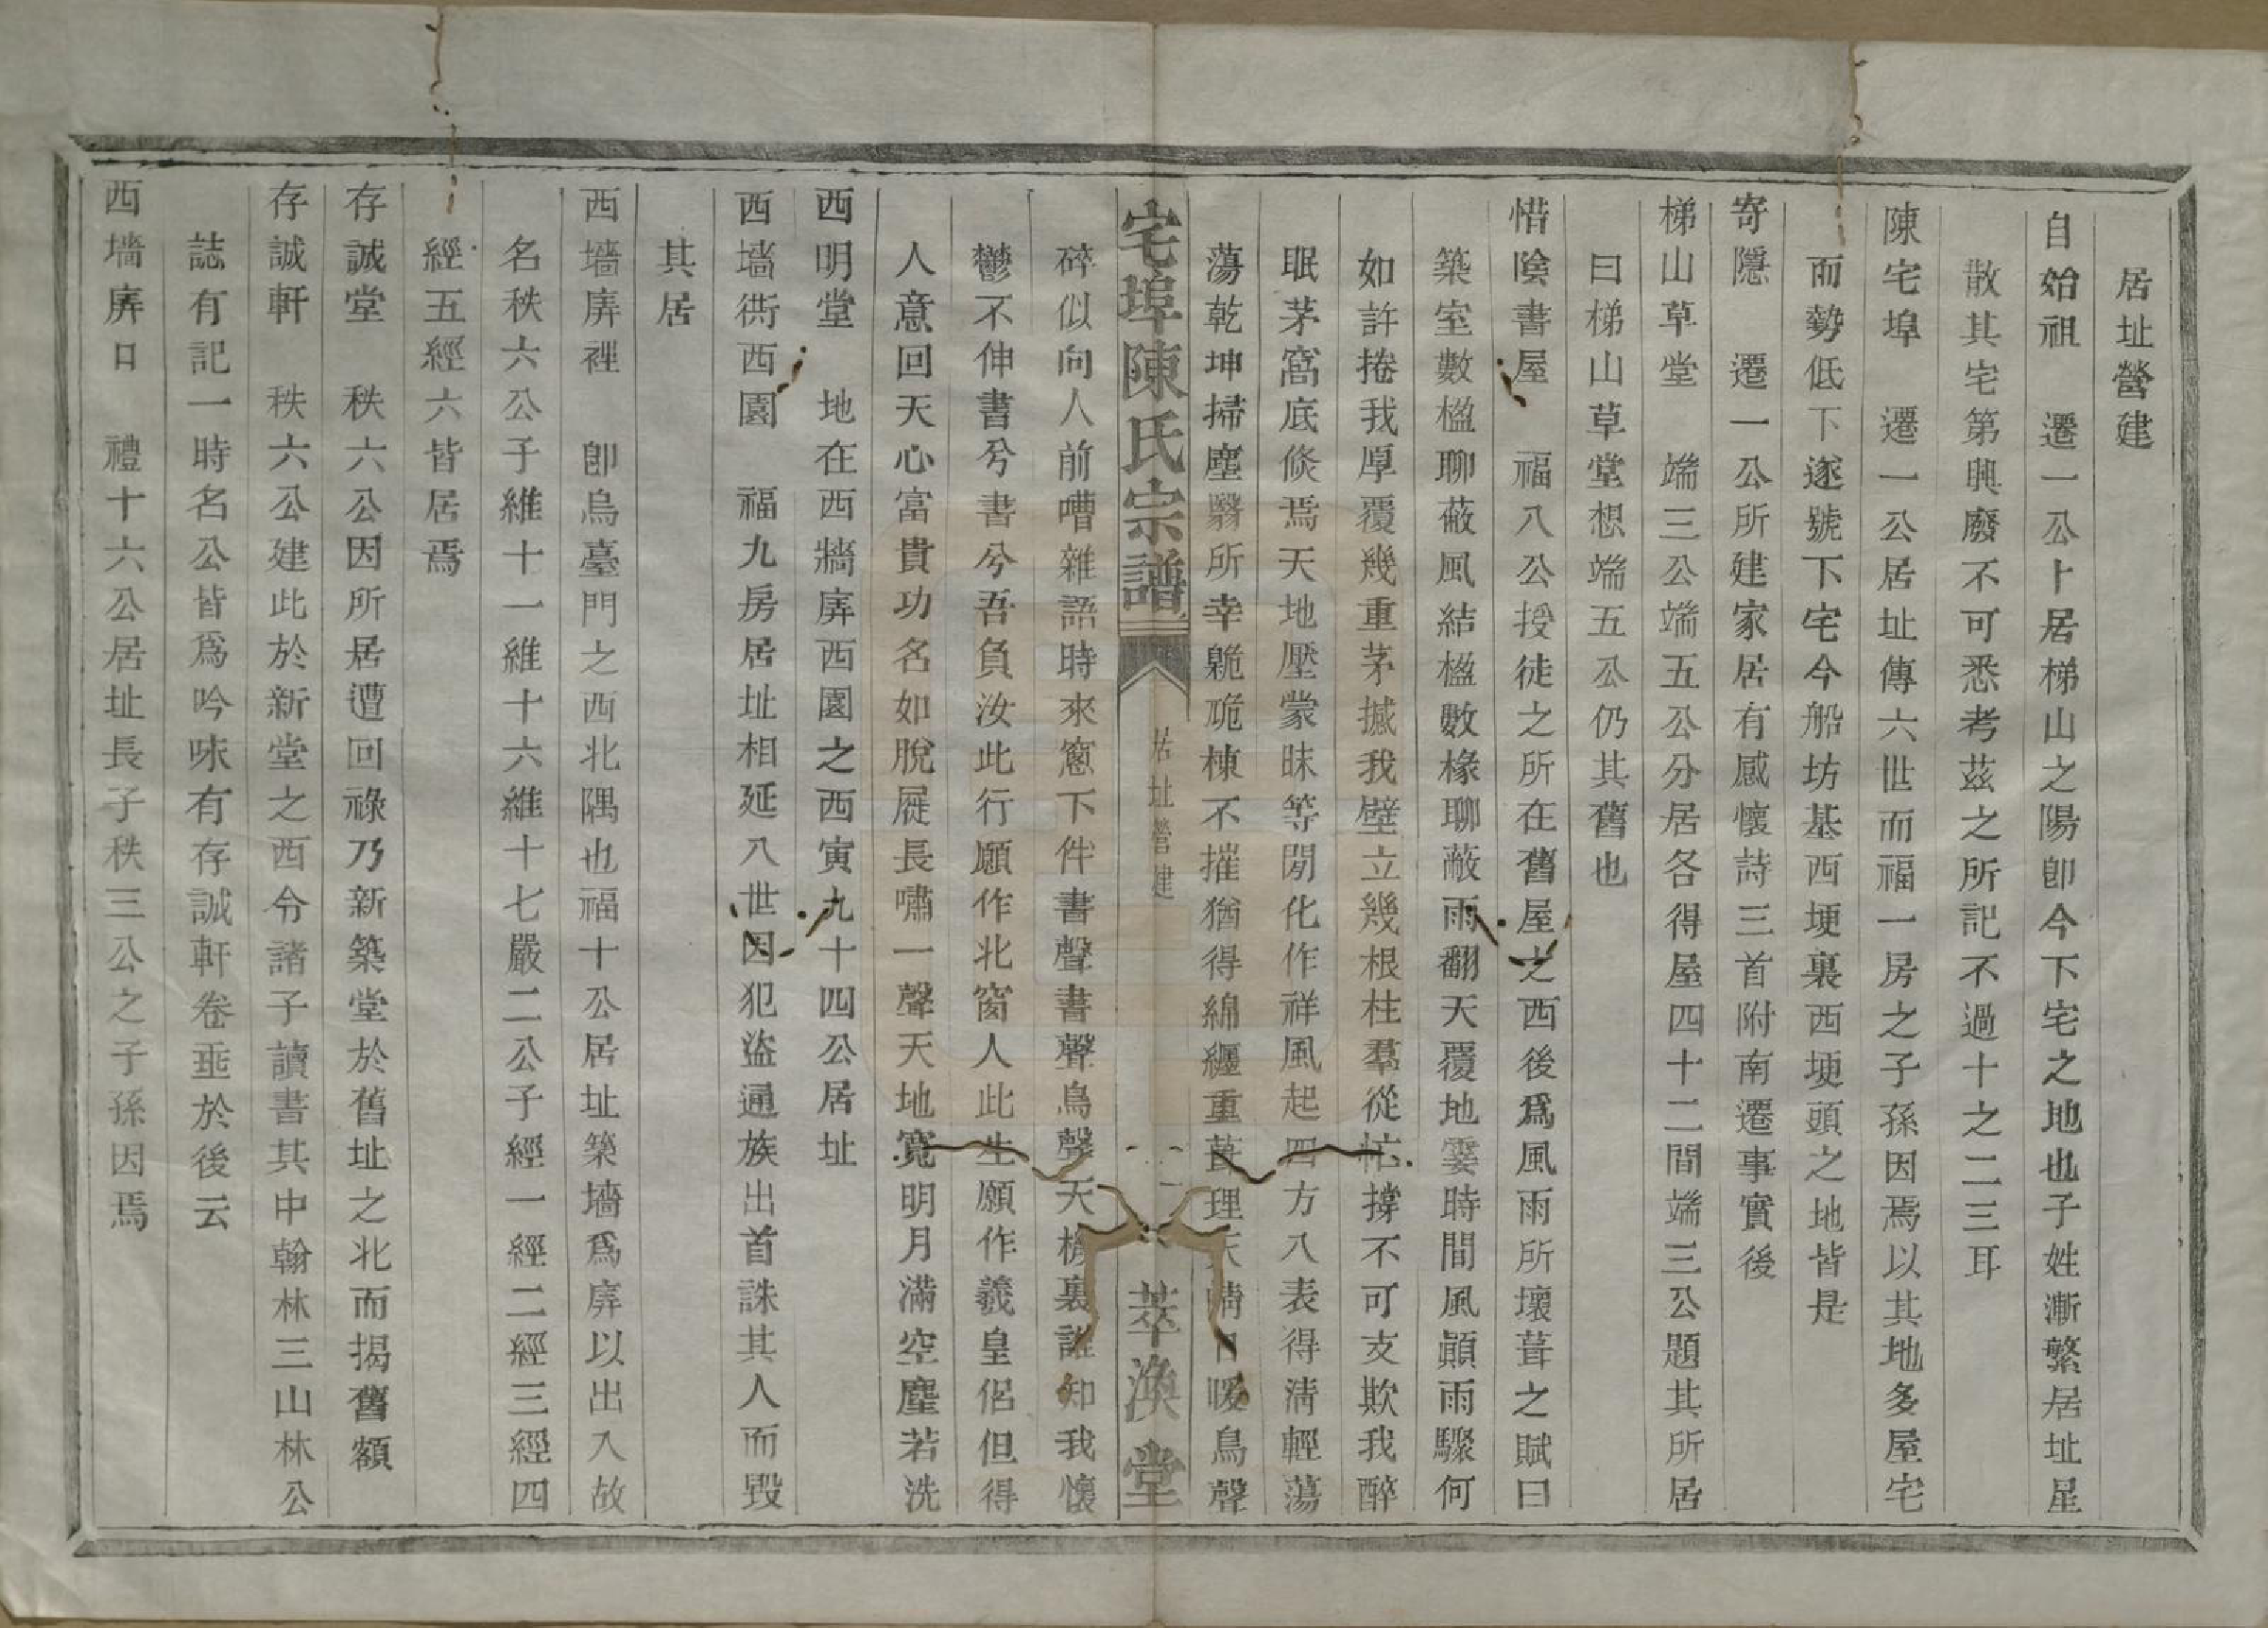 居址營建
自始祖　遷一公卜居梯山之陽卽今下宅之地也子姓漸繁居址星
散其宅第興廢不可悉考茲之所記不過十之二三耳
陳宅埠　遷一公居址傳六世而福一房之子孫因焉以其地多屋宅
而勢低下遂號下宅今船坊基西埂裏西埂頭之地皆是
寄隱　遷一公所建家居有感懷詩三首附南遷事實後
梯山草堂　端三公端五公分居各得屋四十二間端三公題其所居
曰梯山草堂想端五公仍其舊也
惜陰書屋　福八公授徒之所在舊屋之西後爲風雨所壞葺之賦曰
築室數楹聊蔽風結楹數椽聊蔽雨翻天覆地霎時間風顚雨驟何
如許捲我厚覆幾重茅撼我壁立幾根柱羣從忙撐不可支欺我醉
眠茅窩底倐焉天地壓蒙昧等閒化作祥風起四方八表得淸輕蕩
蕩乾坤掃塵翳所幸臲卼棟不摧猶得綿纏重葺理天晴日暖鳥聲
宅埠陳氏宗譜
居址營建
一
萃渙堂
碎似向人前嘈雜語時來窻下伴書聲書聲鳥聲天機裏誰知我懷
鬱不伸書兮書兮吾負汝此行願作北窗人此生願作羲皇侶但得
人意回天心富貴功名如脫屣長嘯一聲天地寬明月滿空塵若洗
西明堂　地在西牆庰西園之西寅九十四公居址
西墻衖西園　福九房居址相延八世因犯盜通族出首誅其人而毀
其居
西墻庰裡　卽烏臺門之西北隅也福十公居址築墻爲庰以出入故
名秩六公子維十一維十六維十七嚴二公子經一經二經三經四
經五經六皆居焉
存誠堂　秩六公因所居遭回祿乃新築堂於舊址之北而揭舊額
存誠軒　秩六公建此於新堂之西令諸子讀書其中翰林三山林公
誌有記一時名公皆爲吟咏有存誠軒卷垂於後云
西墻庰口　禮十六公居址長子秩三公之子孫因焉